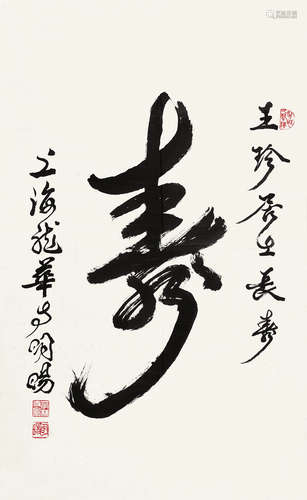 王珍居士長壽
壽
上海龍華寺明暘